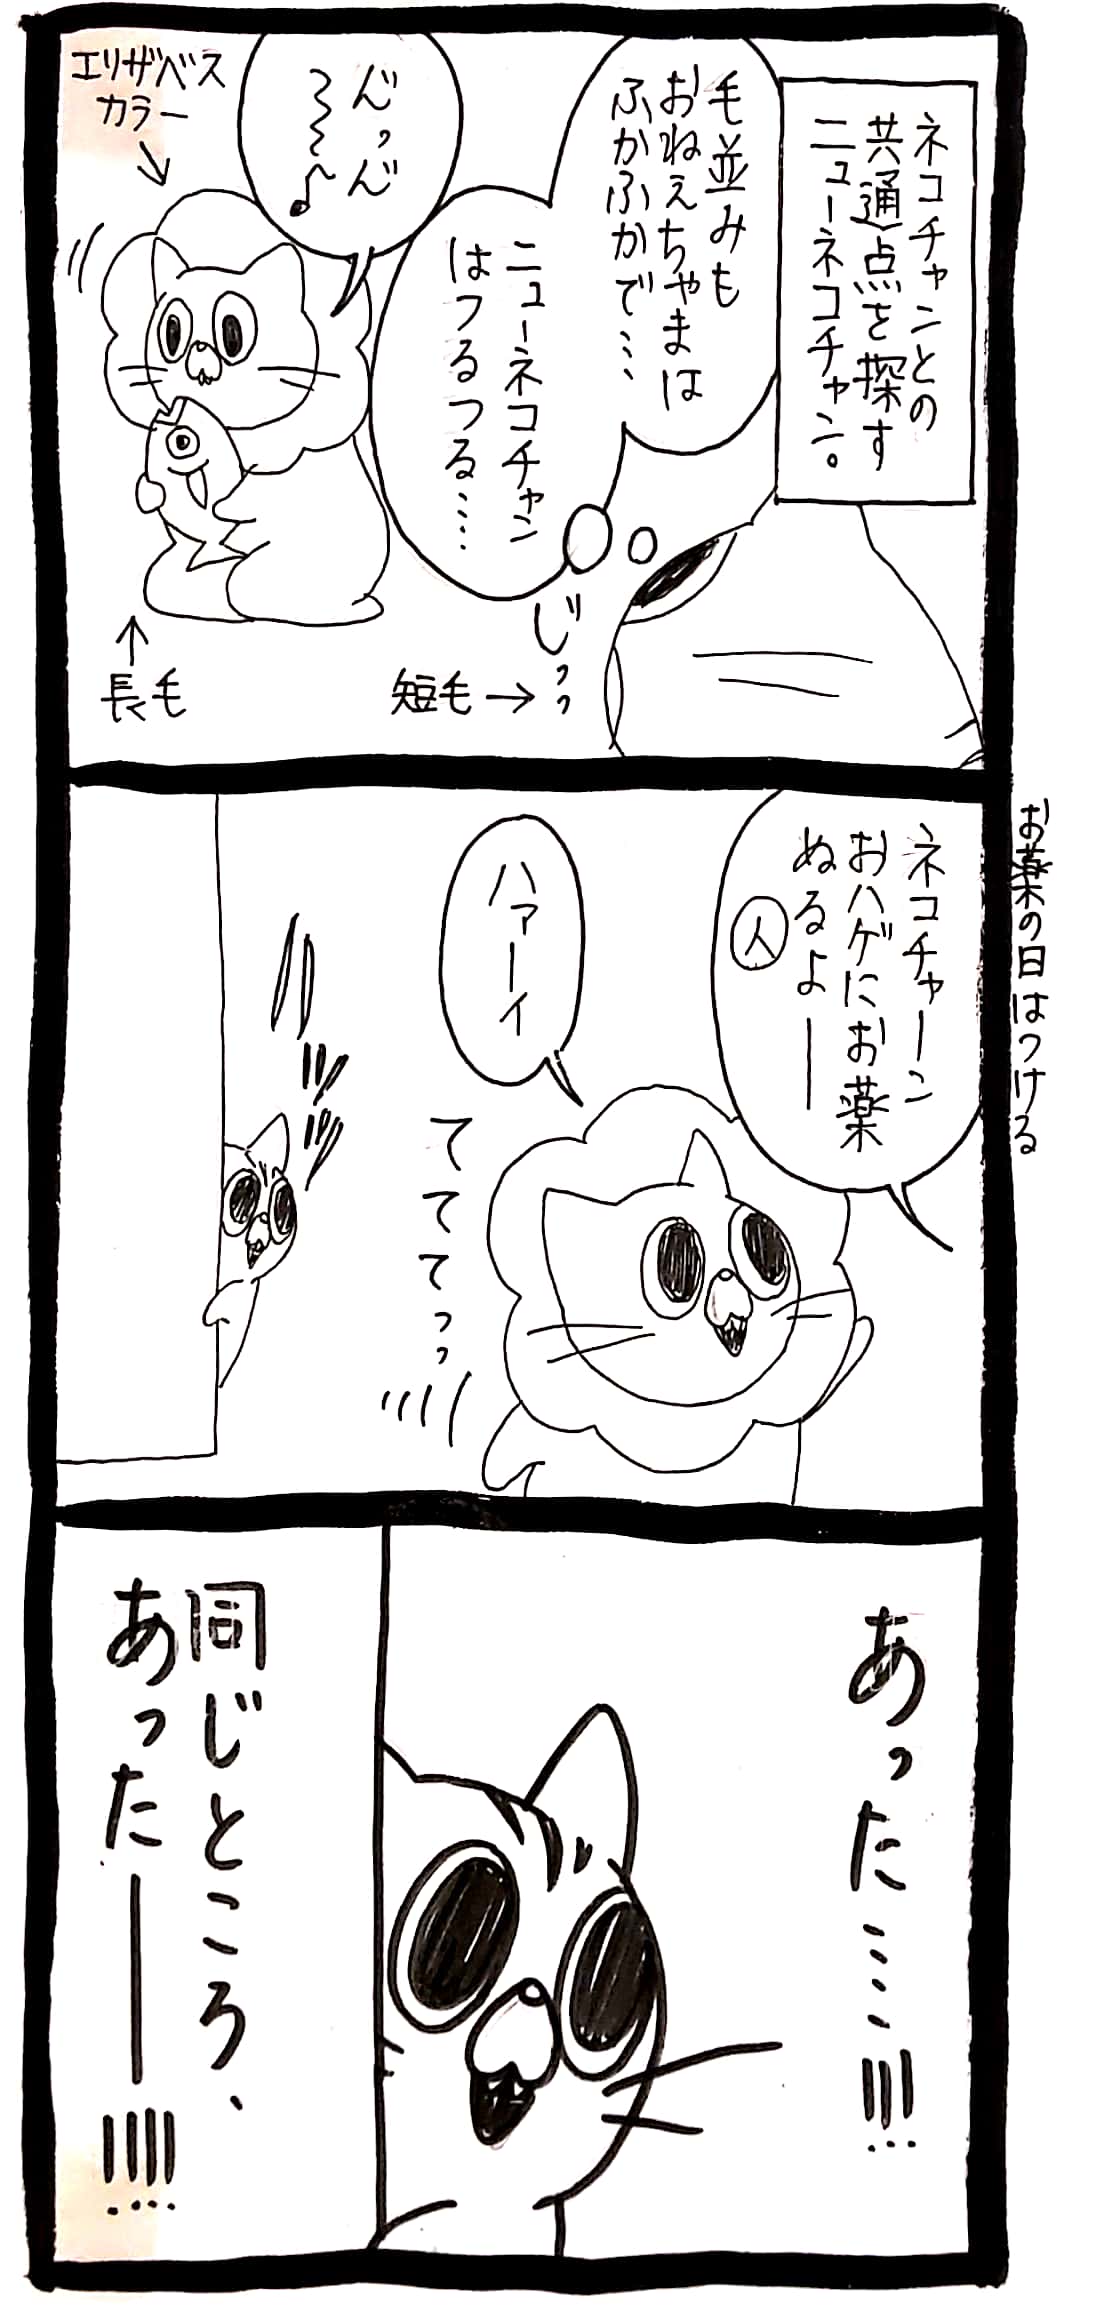 ネコチャンとの
共通点を探す
ニューネコチャン。
毛並みも
おねぇちゃまは
ふかふかで…
ニューネコチャン
はつるつる……
んっん
〜〜〜♪
エリザベス
カラー
長毛
短毛→
じっっ
お薬の日はつける
ネコチャーン
おハゲにお薬
ぬるよー
人
ハァーイ
てててっっ
ハッッ
あった……!!!
同じところ、
あったー!!!!